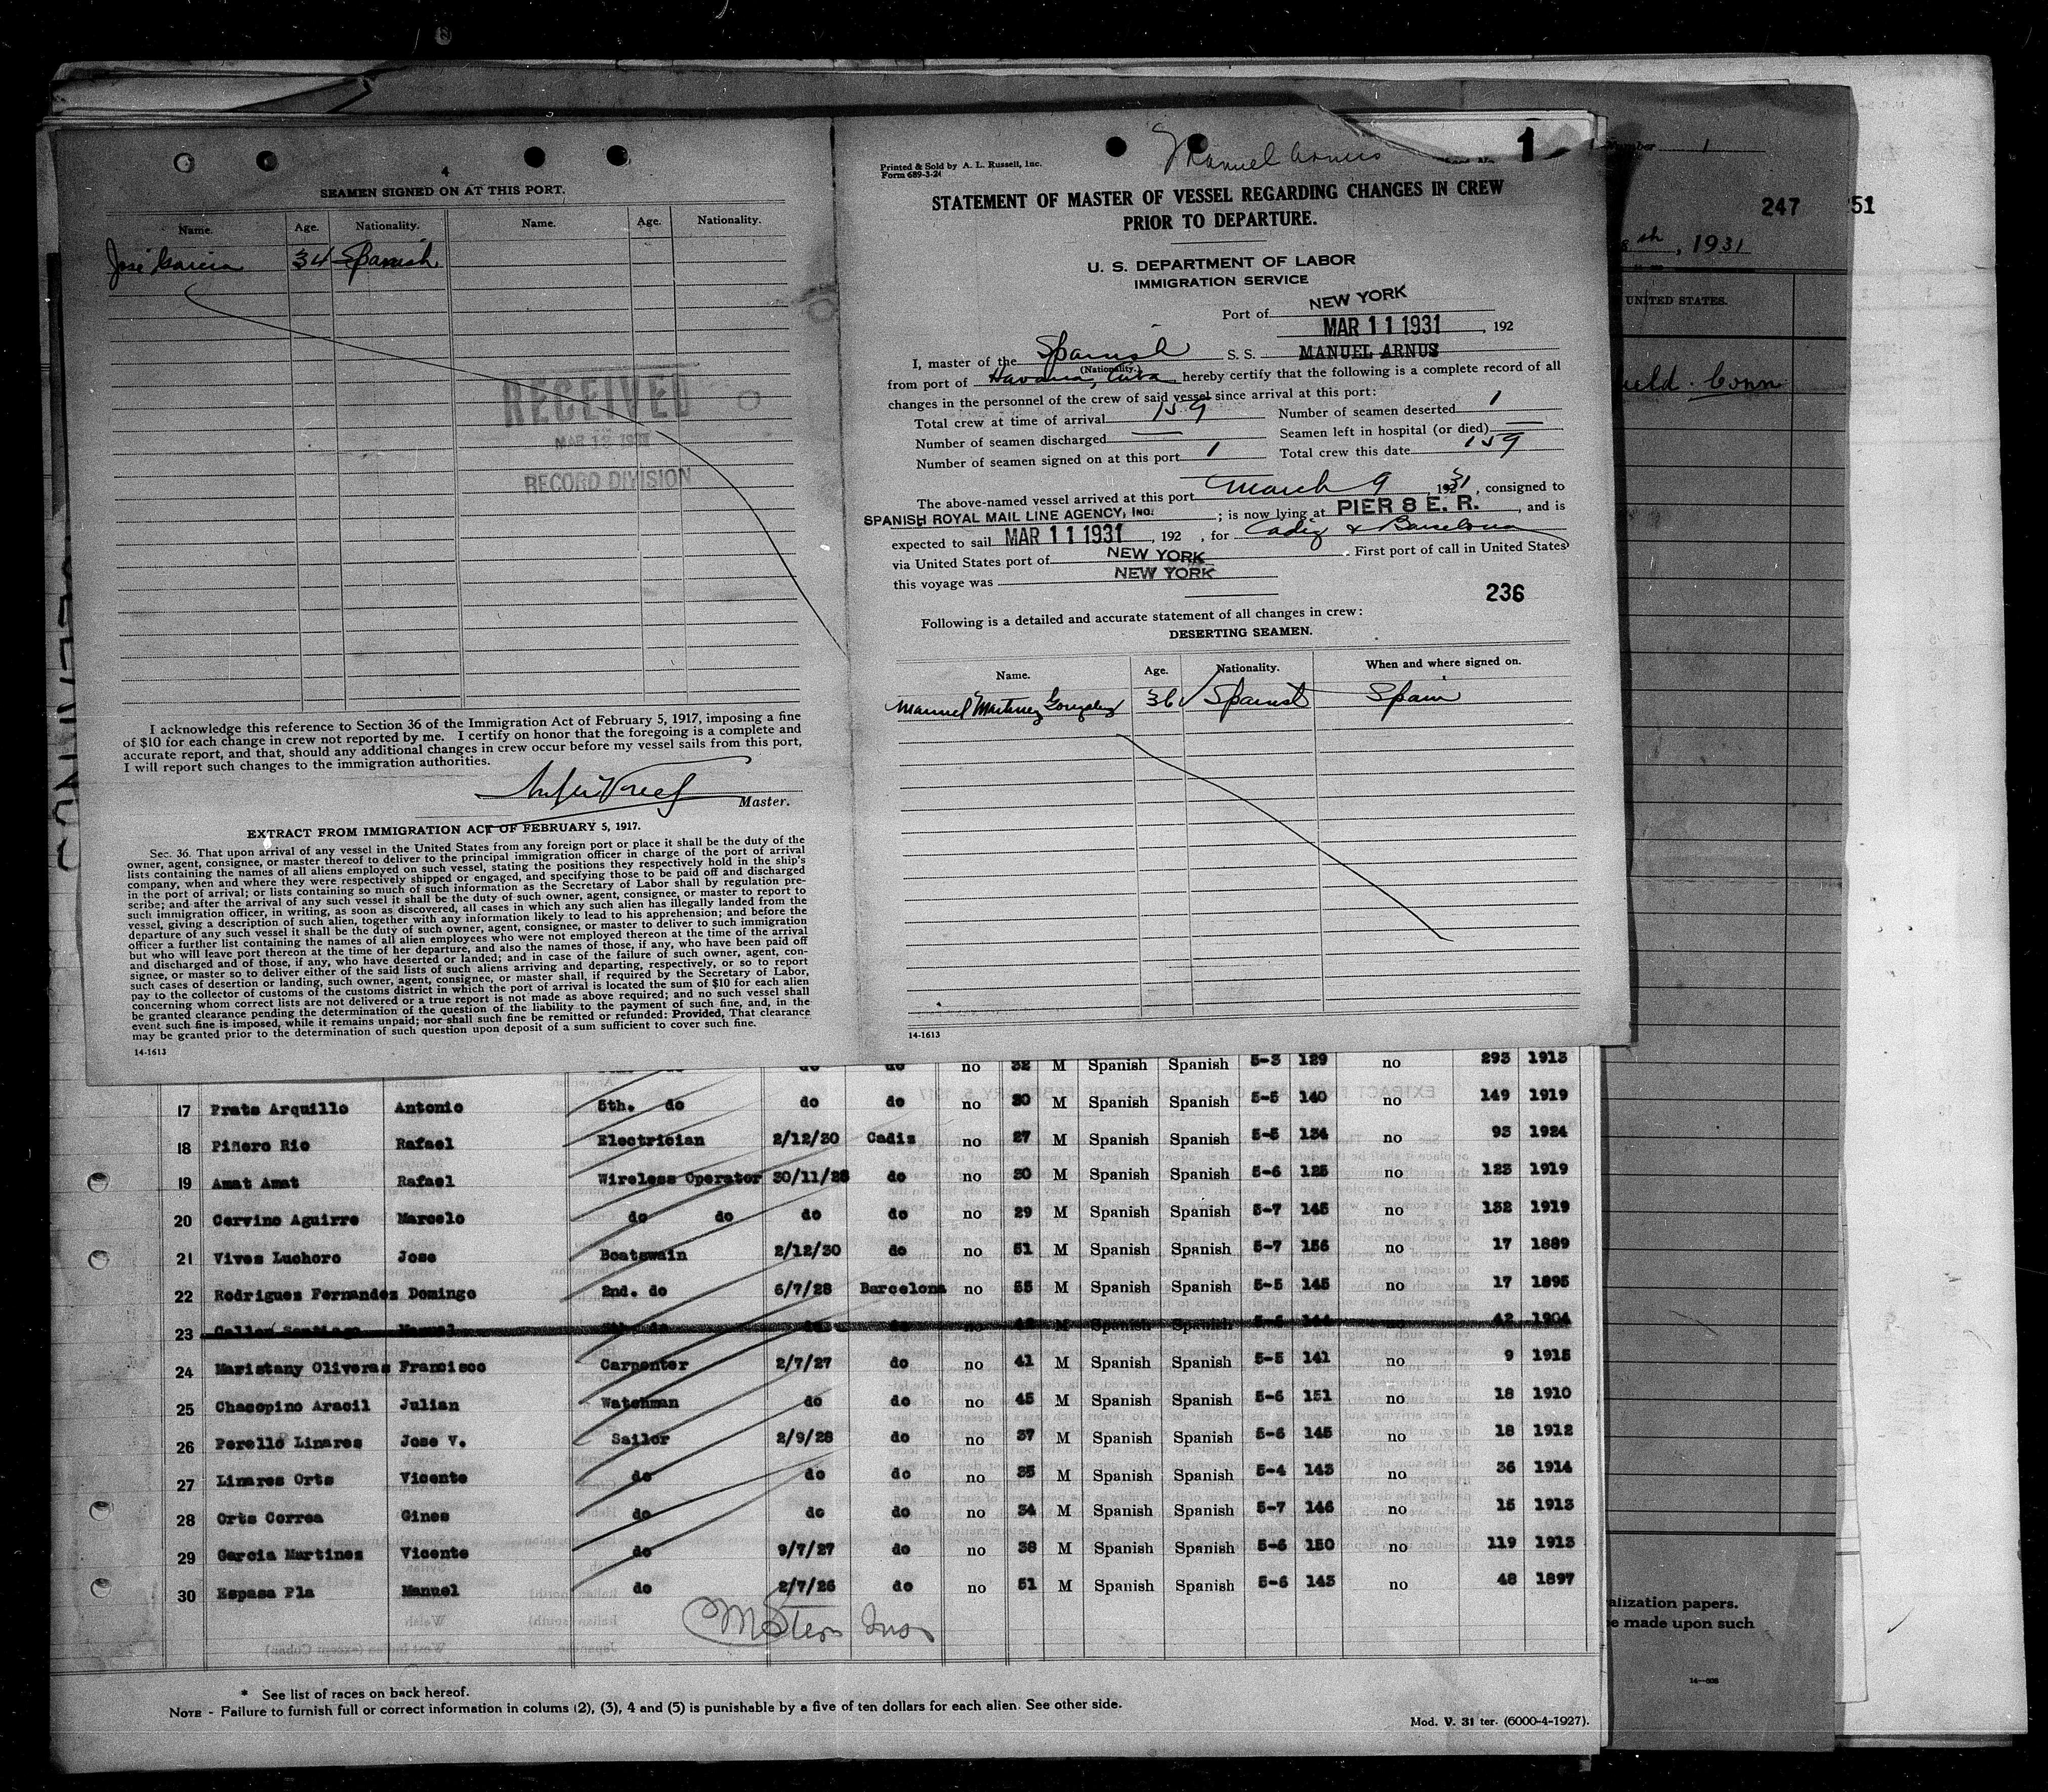 4
SEAMEN SIGNED ON AT THIS PORT.
Name. Age. Nationality. Name. Age. Nationality.
José Garcia 34 Spanish
RECEIVED
MAR 12 1931
RECORD DIVISION
I acknowledge this reference to Section 36 of the Immigration Act of February 5, 1917, imposing a fine
of $10 for each change in crew not reported by me. I certify on honor that the foregoing is a complete and
accurate report, and that, should any additional changes in crew occur before my vessel sails from this port,
I will report such changes to the immigration authorities.
Master.
EXTRACT FROM IMMIGRATION ACT OF FEBRUARY 5, 1917.
Sec. 36. That upon arrival of any vessel in the United States from any foreign port or place it shall be the duty of the
owner, agent, consignee, or master thereof to deliver to the principal immigration officer in charge of the port of arrival
lists containing the names of all aliens employed on such vessel, stating the positions they respectively hold in the ship's
company, when and where they were respectively shipped or engaged, and specifying those to be paid off and discharged
in the port of arrival; or lists containing so much of such information as the Secretary of Labor shall by regulation pre-
scribe; and after the arrival of any such vessel it shall be the duty of such owner, agent, consignee, or master to report to
such immigration officer, in writing, as soon as discovered, all cases in which any such alien has illegally landed from the
vessel, giving a description of such alien, together with any information likely to lead to his apprehension; and before the
departure of any such vessel it shall be the duty of such owner, agent, consignee, or master to deliver to such immigration
officer a further list containing the names of all alien employees who were not employed thereon at the time of the arrival
but who will leave port thereon at the time of her departure, and also the names of those, if any, who have been paid off
and discharged and of those, if any, who have deserted or landed; and in case of the failure of such owner, agent, con-
signee, or master so to deliver either of the said lists of such aliens arriving and departing, respectively, or so to report
such cases of desertion or landing, such owner, agent, consignee, or master shall, if required by the Secretary of Labor,
pay to the collector of customs of the customs district in which the port of arrival is located the sum of $10 for each alien
concerning whom correct lists are not delivered or a true report is not made as above required; and no such vessel shall
be granted clearance pending the determination of the question of the liability to the payment of such fine, and, in the
event such fine is imposed, while it remains unpaid; nor shall such fine be remitted or refunded: Provided, That clearance
may be granted prior to the determination of such question upon deposit of a sum sufficient to cover such fine.
14-1613
Printed & Sold by A. L. Russell, Inc.
Form 689-3-24
Manuel Arnus
1
STATEMENT OF MASTER OF VESSEL REGARDING CHANGES IN CREW
PRIOR TO DEPARTURE.
U. S. DEPARTMENT OF LABOR
IMMIGRATION SERVICE
Port of NEW YORK
MAR 11 1931, 192
I, master of the Spanish S. S. MANUEL ARNUS
(Nationality.)
from port of Havana, Cuba hereby certify that the following is a complete record of all
changes in the personnel of the crew of said vessel since arrival at this port:
Total crew at time of arrival 159 Number of seamen deserted 1
Number of seamen discharged — Seamen left in hospital (or died) —
Number of seamen signed on at this port 1 Total crew this date 159
The above-named vessel arrived at this port March 9, 1931, consigned to
SPANISH ROYAL MAIL LINE AGENCY, INC. ; is now lying at PIER 8 E. R. , and is
expected to sail MAR 11 1931, 192 , for Cadiz & Barcelona
via United States port of NEW YORK . First port of call in United States
this voyage was NEW YORK
236
Following is a detailed and accurate statement of all changes in crew:
DESERTING SEAMEN.
Name. Age. Nationality. When and where signed on.
Manuel Martinez Gonzalez 36 Spanish Spain
14-1613
Number 1
247 51
, 1931
UNITED STATES.
Conn
alization papers.
e made upon such
do do no 32 M Spanish Spanish 5-3 129 no 293 1913
17 Prats Arquillo Antonio 5th. do do do no 30 M Spanish Spanish 5-5 140 no 149 1919
18 Piñero Rio Rafael Electrician 2/12/30 Cadiz no 27 M Spanish Spanish 5-5 134 no 93 1924
19 Amat Amat Rafael Wireless Operator 30/11/28 do no 30 M Spanish Spanish 5-6 125 no 123 1919
20 Cervino Aguirre Marcelo do do do do no 29 M Spanish Spanish 5-7 145 no 132 1919
21 Vives Luchoro Jose Boatswain 2/12/30 do no 51 M Spanish Spanish 5-7 156 no 17 1889
22 Rodrigues Fernandez Domingo 2nd. do 6/7/28 Barcelona no 55 M Spanish Spanish 5-5 145 no 17 1895
23 Santiago Manuel do M Spanish Spanish 144 no 42 1904
24 Maristany Oliveras Francisco Carpenter 2/7/27 do no 41 M Spanish Spanish 5-5 141 no 9 1915
25 Chacopino Aracil Julian Watchman do do no 45 M Spanish Spanish 5-6 151 no 18 1910
26 Perello Linares Jose V. Sailor 2/9/28 do no 37 M Spanish Spanish 5-6 145 no 18 1912
27 Linares Orts Vicente do do do no 35 M Spanish Spanish 5-4 143 no 36 1914
28 Orts Correa Gines do do do no 34 M Spanish Spanish 5-7 146 no 15 1913
29 Garcia Martines Vicente do 9/7/27 do no 38 M Spanish Spanish 5-6 150 no 119 1913
30 Espasa Pla Manuel do 2/7/26 do no 51 M Spanish Spanish 5-6 143 no 48 1897
* See list of races on back hereof.
NOTE - Failure to furnish full or correct information in colums (2), (3), 4 and (5) is punishable by a five of ten dollars for each alien. See other side.
Mod. V. 31 ter. (6000-4-1927).